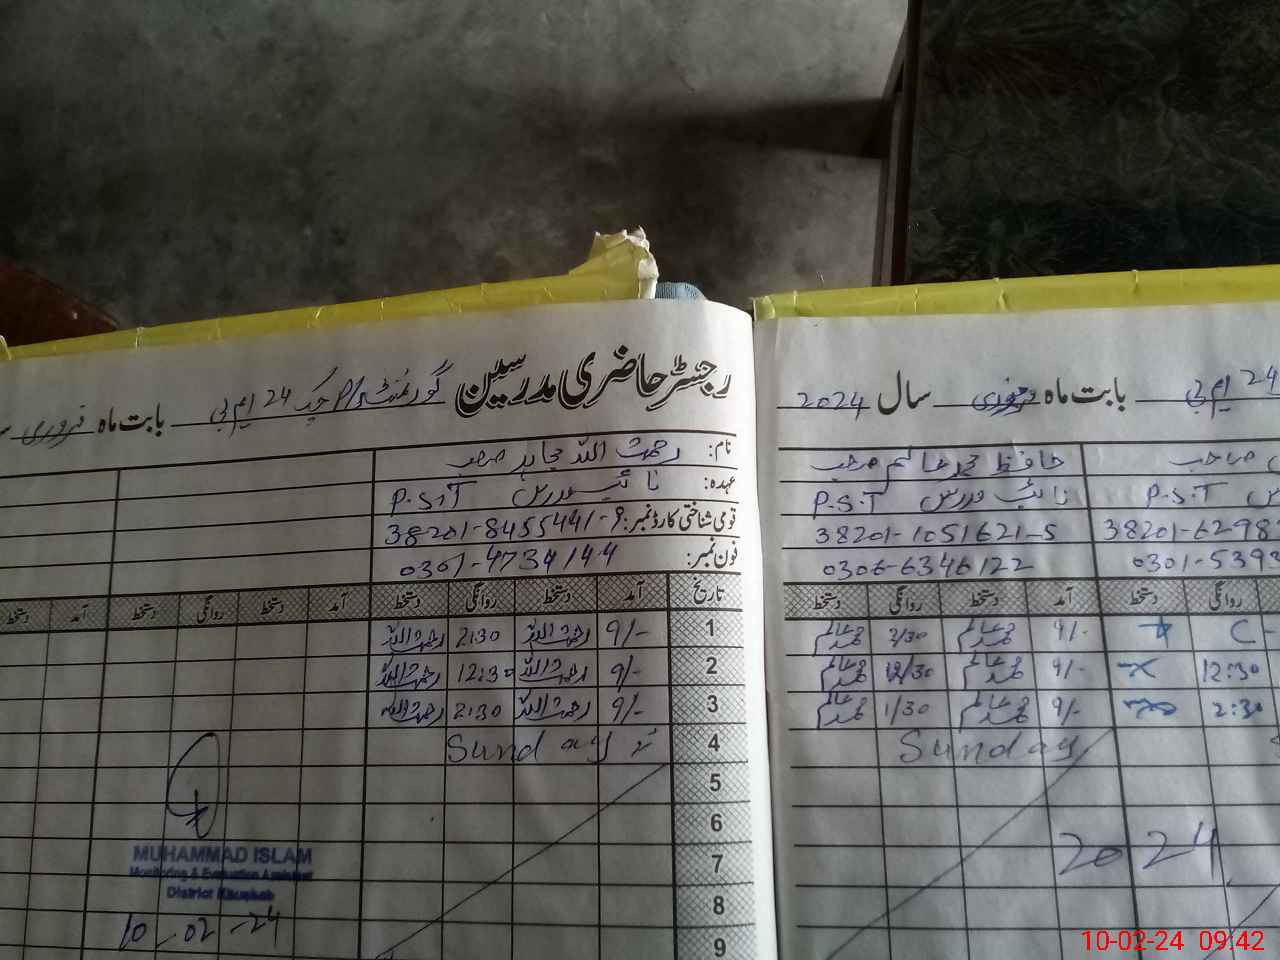 رجسٹر حاضری مدرسین گورنمنٹ P/S چک 24 ایم بی بابت ماہ فروری
نام: رحمت اللہ مجاہد صاحب
عہدہ: نائب مدرس P.S.T
قومی شناختی کارڈ نمبر: 38201-8455441-9
فون نمبر: 0301-4734144
تاریخ آمد دستخط روانگی دستخط آمد دستخط روانگی دستخط آمد دستخط
1 9/- رحمت اللہ 2:30 رحمت اللہ
2 9/- رحمت اللہ 12:30 رحمت اللہ
3 9/- رحمت اللہ 2:30 رحمت اللہ
4 Sunday
5
6
7
8
9
MUHAMMAD ISLAM
Monitoring & Evaluation Assistant
District Khushab
10-02-24
24 ایم بی بابت ماہ فروری سال 2024
صاحب حافظ محمد عالم صاحب
P.S.T نائب مدرس P.S.T
38201-6298 38201-1051621-5
0301-5393 0306-6346122
روانگی دستخط آمد دستخط روانگی دستخط
C- 9/- محمد عالم 2/30 محمد عالم
12:30 9/- محمد عالم 12/30 محمد عالم
2:30 9/- محمد عالم 1/30 محمد عالم
Sunday
2024
10-02-24 09:42